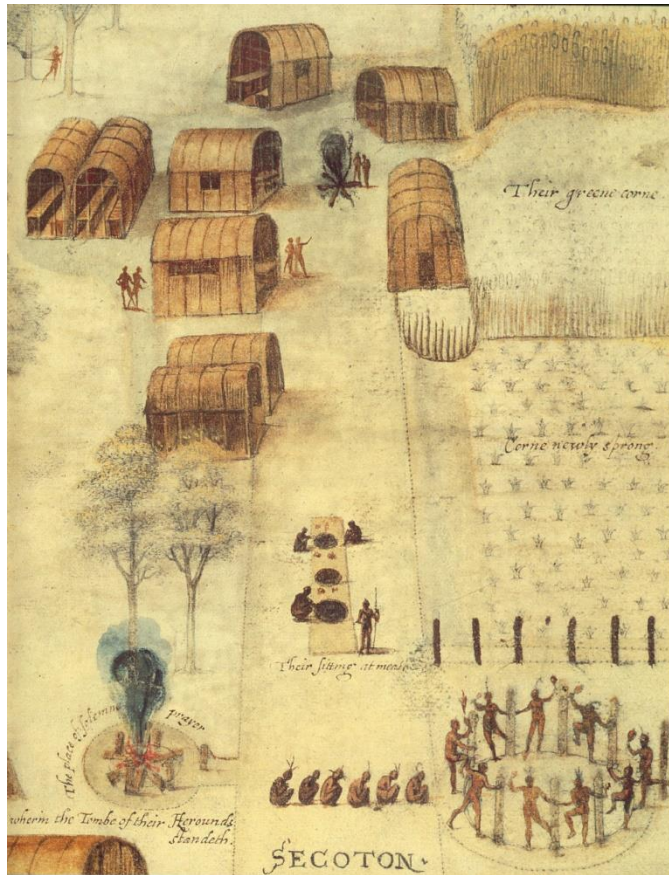 Their greene corne
Corne newly sprong
Their sitting at meate
The place of solemne prayer
wherin the Tombe of their Herounds
standeth.
SECOTON.